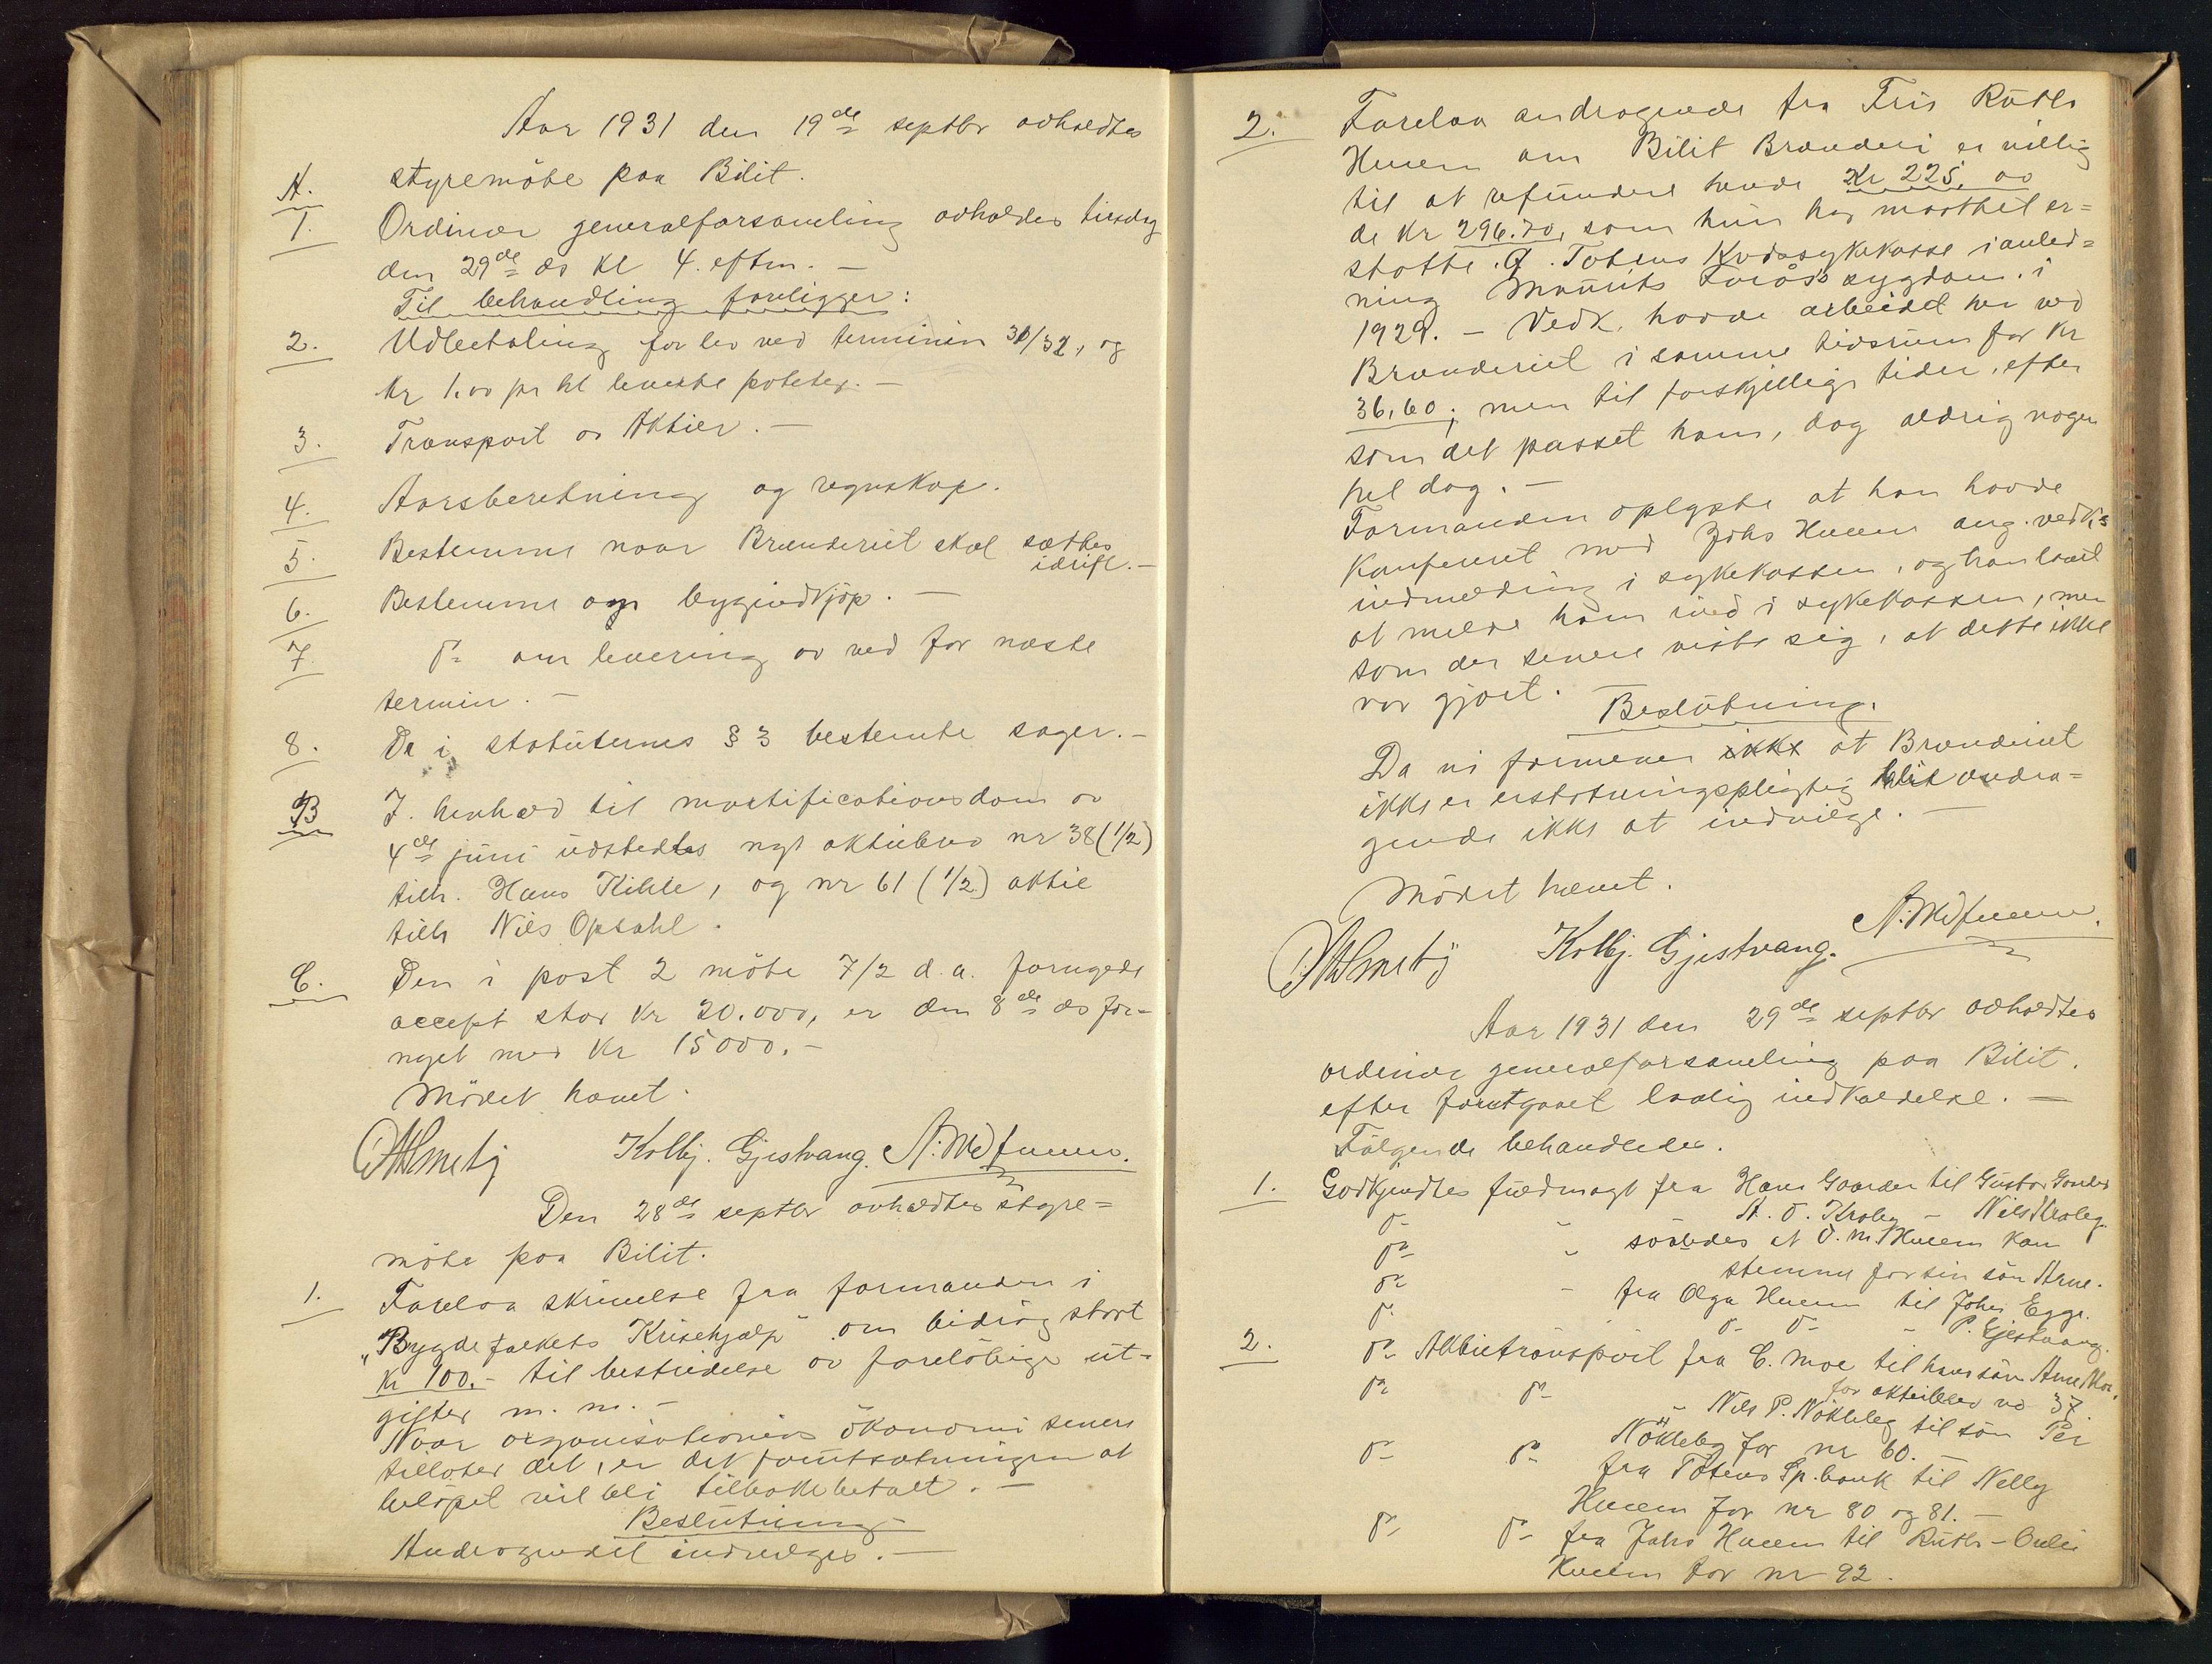 Aar 1931 den 19de septbr avholdtes
styremöte paa Bilit.
A.
1. Ordinær generalforsamling avholdes tirsdag
den 29de ds kl 4. eftm. —
Til behandling foreligger:
2. Udbetaling for lev ved terminen 31/32, og
kr 1.00 pr hl leverte poteter. —
3. Transport av Aktier. —
4. Aarsberetning og regnskap.
5. Bestemme naar Brænderiet skal sættes
idrift. —
6. Bestemme om bygindkjöp. —
7. D= om levering av ved for næste
termin. —
8. De i statuternes § 3 bestemte sager. —
B I. henhold til mortifications dom av
4de juni utstedtes nyt aktiebrev nr 38 (1/2)
tilh. Hans Kihle, og nr 61 (1/2) aktie
tilh Nils Opsahl.
C. Den i post 2 möte 7/2 d.a. fornyede
accept stor kr 20.000, er den 8de ds for-
nyet med kr 15000. –
Mödet hævet.
Kolbj. Gjestvang.
Den 28de septbr avholdtes styre=
möte paa Bilit.
1. Forelaa skrivelse fra formanden i
„Bygdefolkets Krisehjælp" om bidrag stort
kr 100. – til bestridelse av foreløbige ut-
gifter m. m. –
Naar organisationens ökonomi senere
tillater det, er det forutsætningen at
belöpet vil bli tilbakebetalt. —
Beslutning
Andragendet indvilges. —
2. Forelaa andragende fra Frü Ruth
Hueem om Bilit Brænderi er villig
til at refundere hende kr 225, av
de kr 296.70, som hun har maattet er=
statte Ö. Totens Kredssykekasse i anled=
ning Mauritz sygdom i
1929. – Vedk. havde arbeidet her ved
Brænderiet i samme tidsrum for kr
36,60, men til forskjellige tider, efter
som det passet ham, dog aldrig nogen
hel dag. —
Formanden oplyste at han havde
konferert med Johs Hueem ang. vedk.s
indmelding i sykekassen, og han lovet
at melde ham ind i sykekassen, men
som der senere viste sig, at dette ikke
var gjort.
Beslutning.
Da vi formener ikke at Brænderiet
ikke er erstatningspligtig blir andra=
gende ikke at indvilge. —
Mödet hævet.
Kolbj. Gjestvang.
Aar 1931 den 29de septbr avholdtes
ordinær generalforsamling paa Bilit.
efter forutgaaet lovlig indkaldelse. —
Fölgende behandledes.
1. Godkjendtes fuldmagt fra Hans Gaarder til Gustav Gaarder
D= " A. O. Kraby – Nils Kraby.
D= " saaledes at O. M. Hueem kan
stemme for sin sön Arne.
D= – fra Olga Hueem til Johs Egge.
D= D= D= – P. Gjestvang.
2. D= Aktietransport fra C. Moe til hans sön Arne Moe,
for aktiebrev no 37.
D= D= – Nils P. Nökleby til sön Per
Nökleby for nr 60. —
D= D= fra Totens Sp.bank til Nelly
Hueem for nr 80 og 81. —
D= D= fra Johs Hueem til Ruth-
Hueem for nr 92.